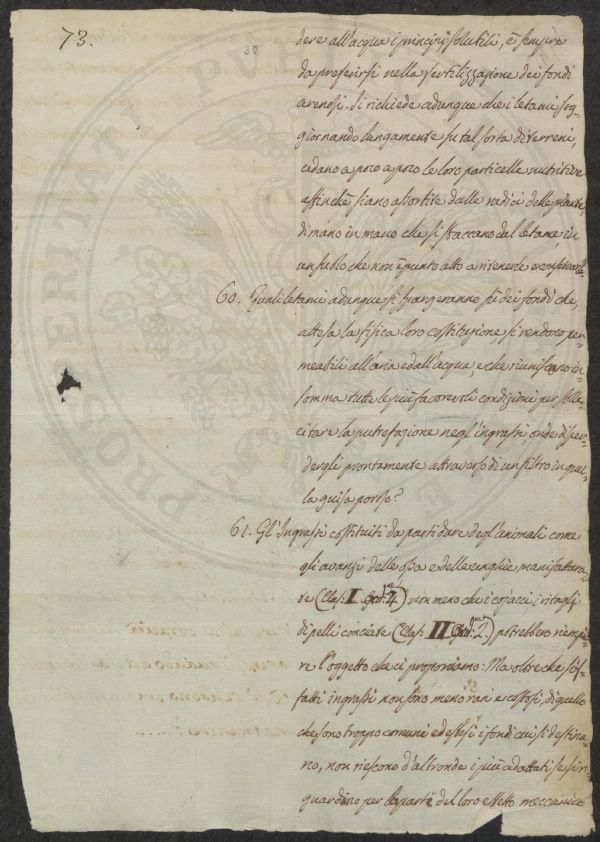 73.
32
dere all'acqua i principj solubili, è sempre
da preferirsi nella fertilizzazione dei fondi
arenosi. Si richiede adunque che i letami sog-
giornando lungamente su tal sorta di terreni,
cedano a poco a poco le loro particelle nutritive
affinchè siano assorbite dalle radici delle piante,
di mano in mano che si staccano dal letame, in
un suolo che non è punto atto a ritenerle e conservarle.
60. Quali letami adunque si spargeranno su dei fondi che,
attesa la fisica loro costituzione, si rendono per-
meabili all'aria ed all'acqua, e che riuniscono in-
somma tutte le più favorevoli condizioni per solle-
citare la putrefazione negl'ingrassi, onde disper-
dergli prontamente attraverso di un filtro in quel-
la guisa poroso?
61. Gl'Ingrassi costituiti da parti dure degl'animali come
gli avanzi delle ossa e delle unghie manifattura-
te (Clas: I. Ord: 4) non meno che i cojacci, i ritagli
di pelli conciate (Clas: II Ord: 2.) potrebbero riempi-
re l'oggetto che ci proponiamo: Ma oltre che sif-
fatti ingrassi non sono meno rari e costosi, di quello
che sono troppo comuni ed estesi i fondi cui si destina-
no, non riescono d'altronde i più adattati se si ri-
guardano per la parte del loro effetto meccanico
PROSPERITATI PVBL